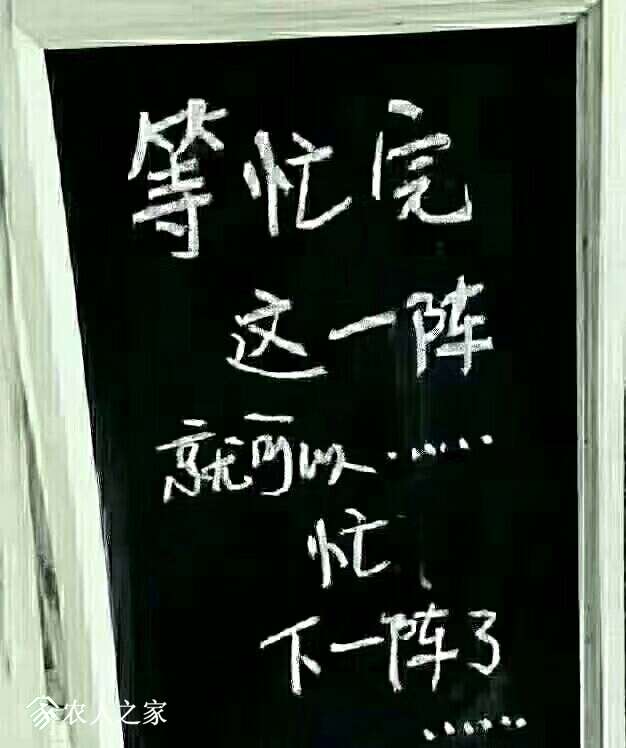 等忙完
这一阵
就可以······
忙
下一阵了
······
农人之家